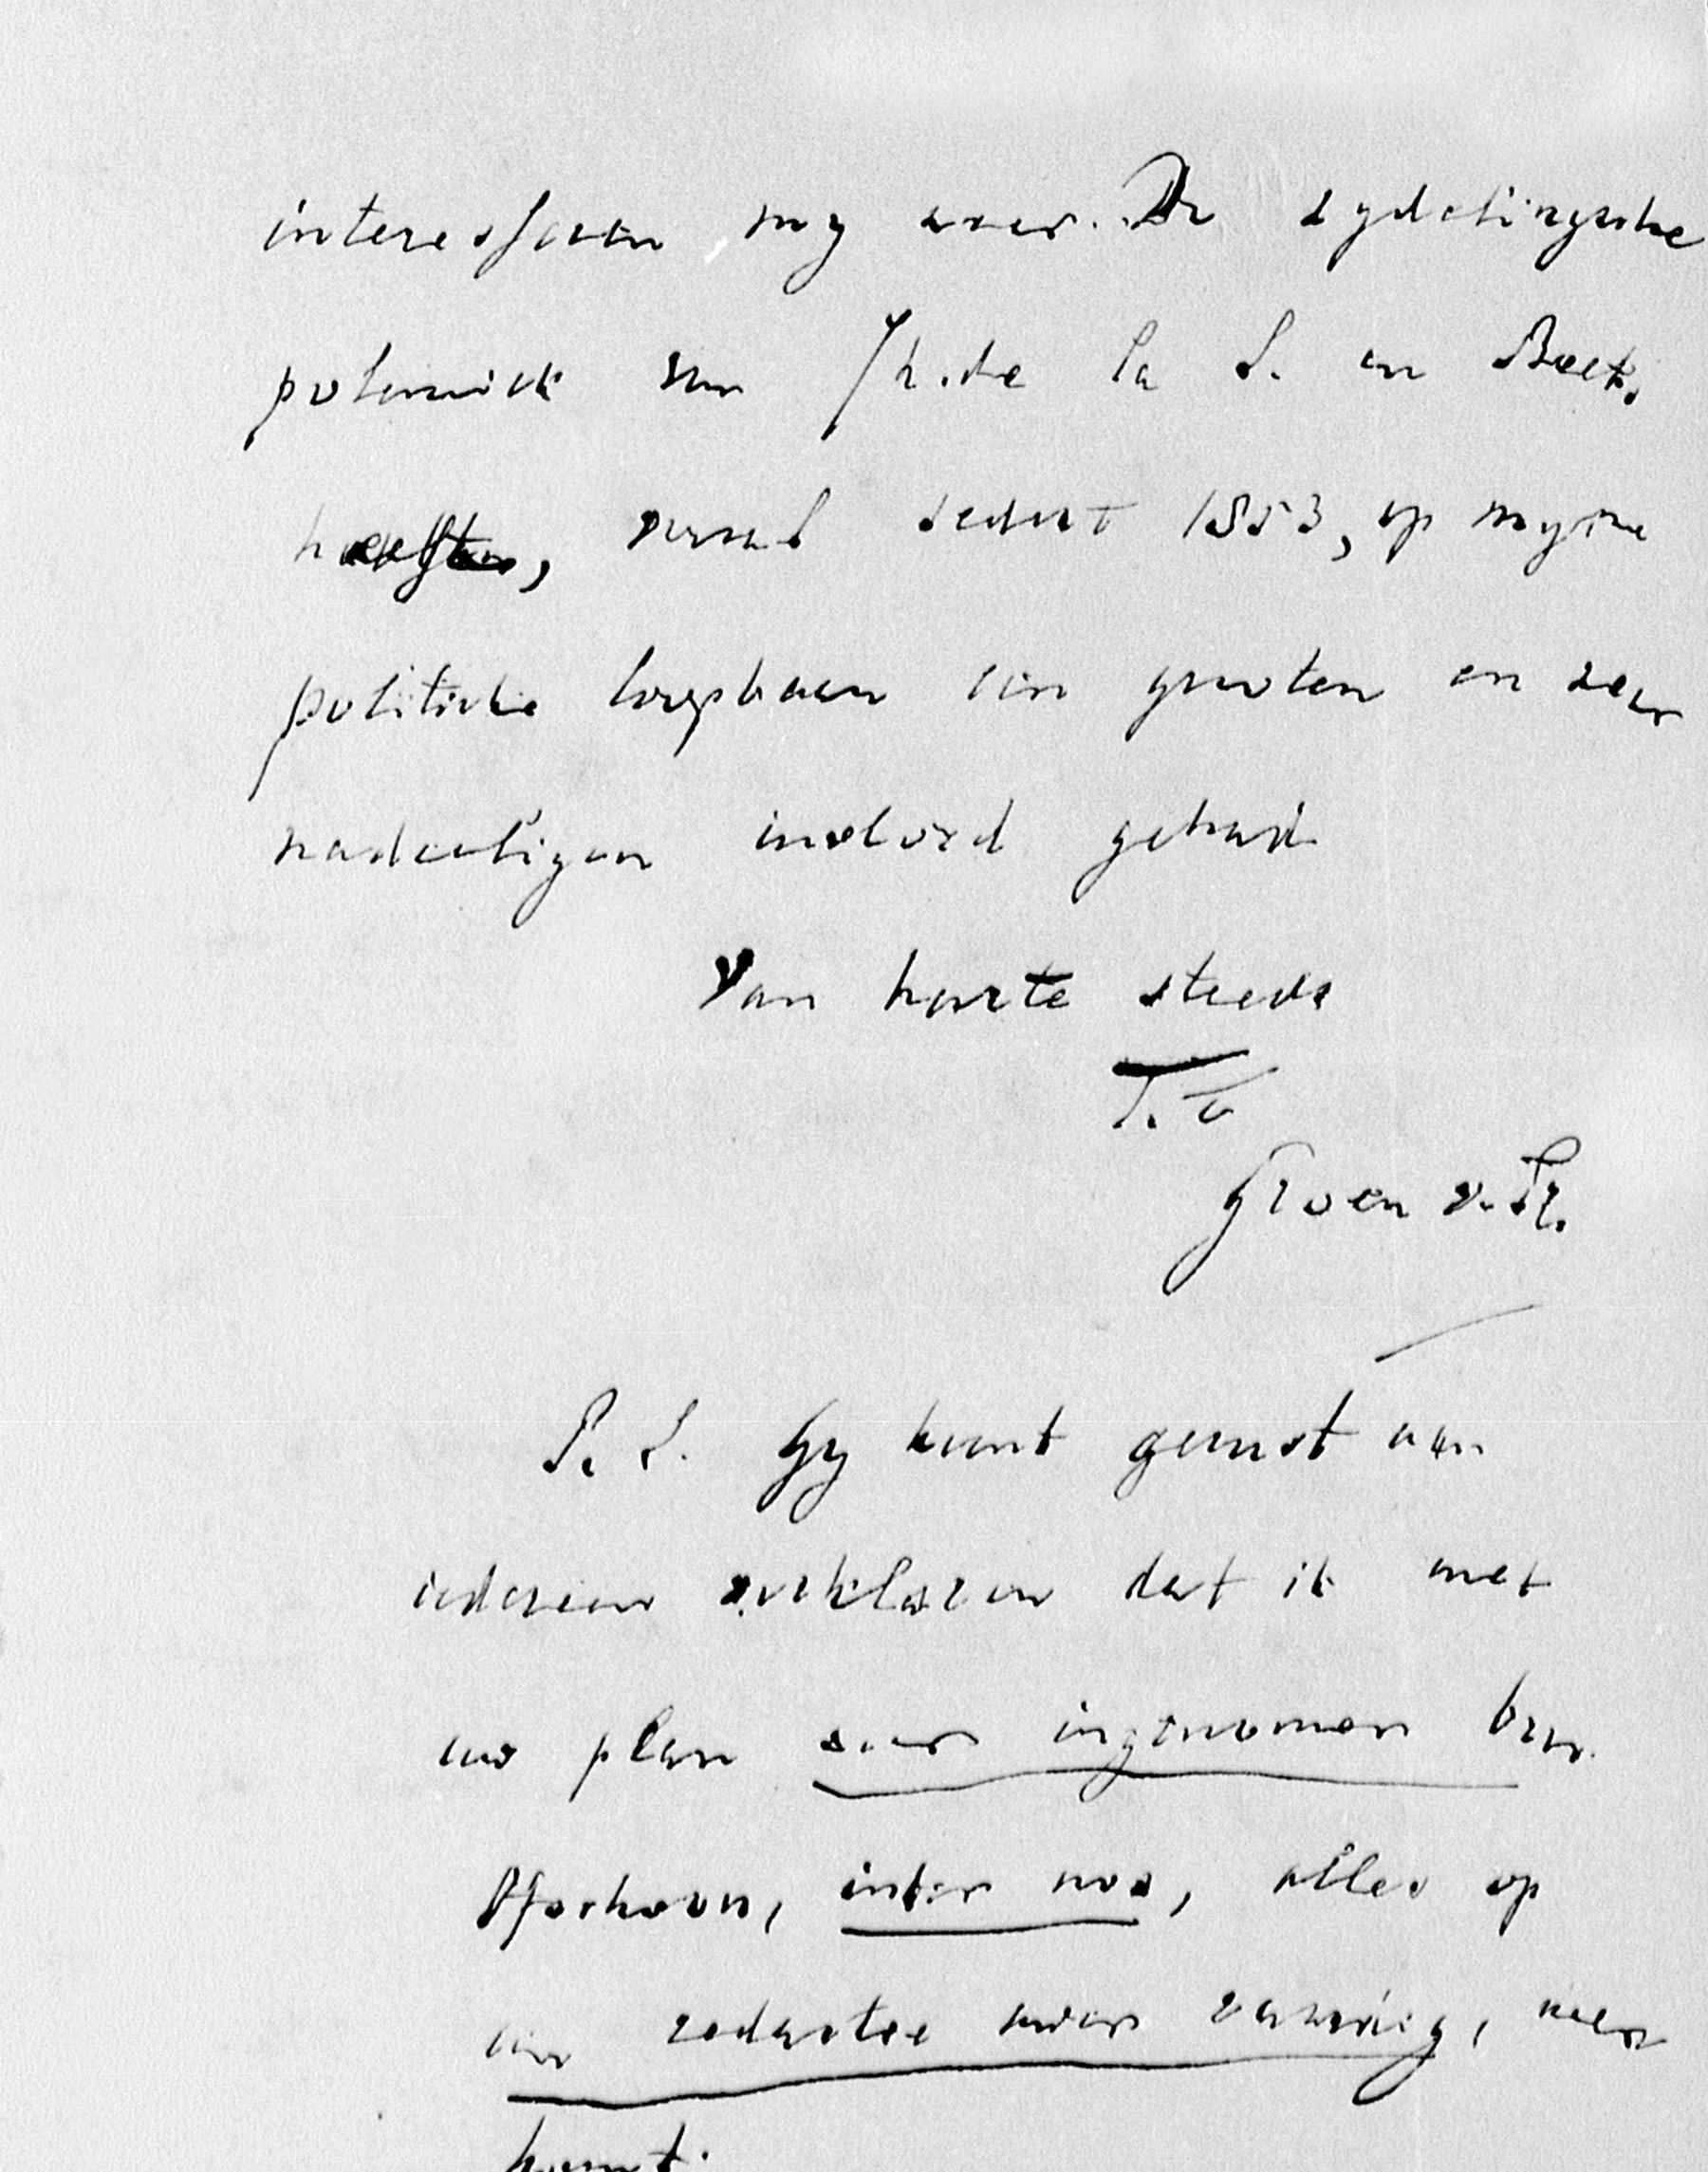 interesseren my zeer. De zydelingsche
polemiek van Ch. de la S. en Beets
hebben, vooral sedert 1853, op myne
politieke loopbaan een grooten en zeer
nadeeligen invloed gehad
Van harte steeds
T. t
Groen v. Pr.
P. S. Gy kunt gerust aan
iedereen verklaren dat ik met
uw plan zeer ingenomen ben.
Ofschoon, inter nos, alles op
een redactee neer
komt.